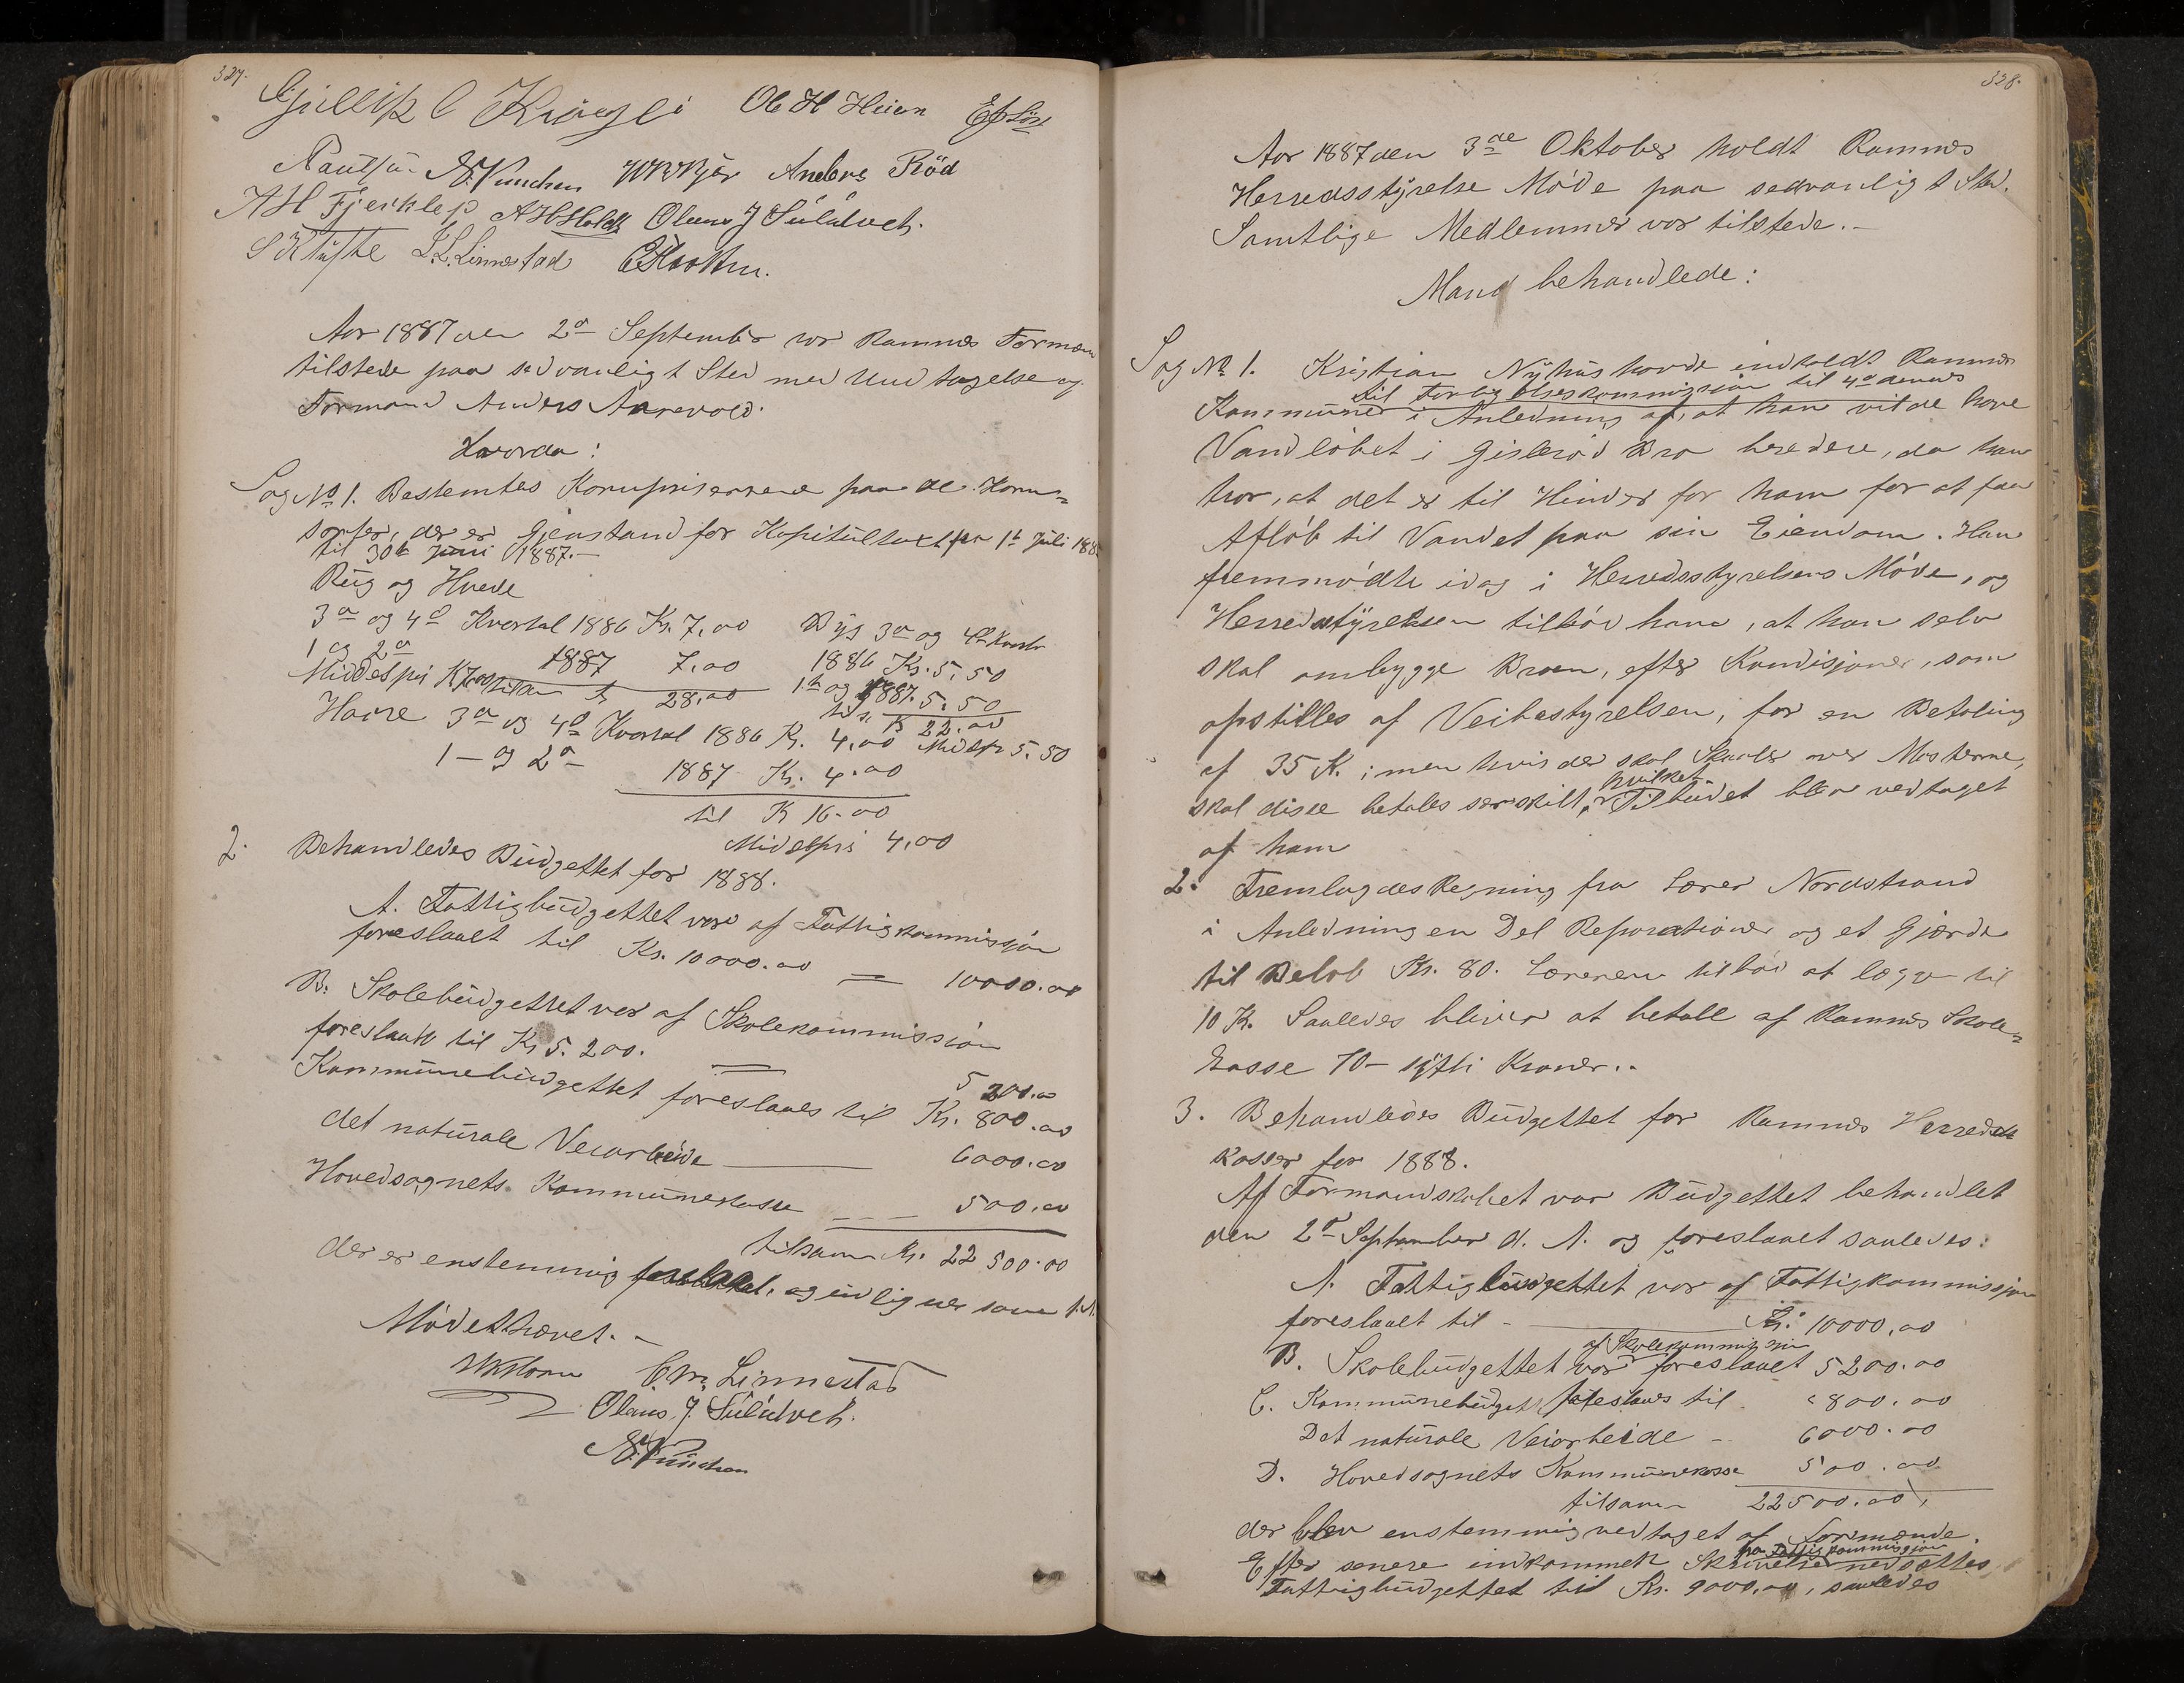 327.
Ole H Heian
Anders Röd
Olaus J Sulutvet.
L. L. Linnestad
Aar 1887 den 2den September var Ramnæs Formæn
tilstede paa sedvanligt Sted med Undtagelse af
Formand Anders Aarevold.
Hvorda:
Sag No 1. Bestemtes Kornpriserne paa de Korn-
sorter, der er Gjenstand for Kapitultaxt fra 1te Juli 188
til 30te Juni 1887.—
Rug og Hvede
3die og 4de Kvartal 1886 Kr. 7,00 Byg 3die og 4de Kvart
1 og 2den 1887 7,00 1886 Kr. 5,50
Middelpri Kr 7,00 tilsam 28,00 1ste og 1887. 5,50
tils. K 22.00
Havre 3die og 4de Kvartal 1886 K. 4,00 Midelpr 5.50
1 — og 2den 1887 Kr. 4.00
til K 16.00
Midelpris 4,00
2. Behandledes Budgettet for 1888.
A. Fattigbudgettet var af Fattigkommissjon
foreslaaet til Kr. 10000.00 = 10000.00
B. Skolebudgettet var af Skolekommission
foreslaaet til Kr 5.200. = 5 200.00
Kommunebudgettet foreslaaes til Kr. 800.00
det naturale Veiarbeide — 6000.00
Hovedsognets Kommunekasse — 500.00
tilsam Kr. 22 500.00
der er enstemmig og udlignes som
Mödet hævet. —
C. M. Linnestad
Olaus J. Sulutvet.
328.
Aar 1887 den 3de Oktober holdt Ramnæs
Herredsstyrelse Möde paa sedvanligt Sted.
Samtlige Medlemmer var tilstede.—
Mand behandlede:
Sag No 1. Kristian Nyhus havde indkaldt Ramnæs
til Forligelseskommission til 4de dennes
Kommune i Anledning af, at han vilde have
Vandlöbet i Gislеröd Bro bredere, da han
tror, at det er til Hinder for ham for at faa
Aflöb til Vandet paa sin Eiendom. Han
fremmödte idag i Herredsstyrelsens Möde, og
Herredsstyrelsen tilböd ham, at han selv
skal ombygge Broen, efter Kondisjoner, som
opstilles af Veibestyrelsen, for en Betaling
af 35 K.; men hvis der skal Skaaler over
skal disse betales særskilt, hvilket Tilbudet blev vedtaget
af ham
2. Fremlagdes Regning fra Lærer Nordstrand
i Anledning en Del Reparationer og et Gjærde
til Belöb Kr. 80. Læreren tilböd at lægge til
10 Kr. Saaledes bliver at betale af Ramnæs Skole-
kasse 70 — sytti Kroner..
3. Behandledes Budgettet for Ramnæs Herreds
Kasser for 1888.
Af Formandskabet var Budgettet behandlet
den 2den September d. A. og foreslaaet saaledes:
A. Fattigbudgettet var af Fattigkommissjon
foreslaaet til — Kr. 10000,00
af Skolekommission
B. Skolebudgettet var foreslaaet 5200.00
C. Kommunebudget foreslaaes til " 800.00
Det naturale Veiarbeide — 6000.00
D. Hovedsognets Kommunekasse 500.00
tilsam 22500.00,
der blev enstemmig vedtaget af Formænde.
fra Fattigkommissjon
Efter senere indkommen Skrivelse nedsættes
Fattigbudgettet til Kr. 9000.00, saaledes